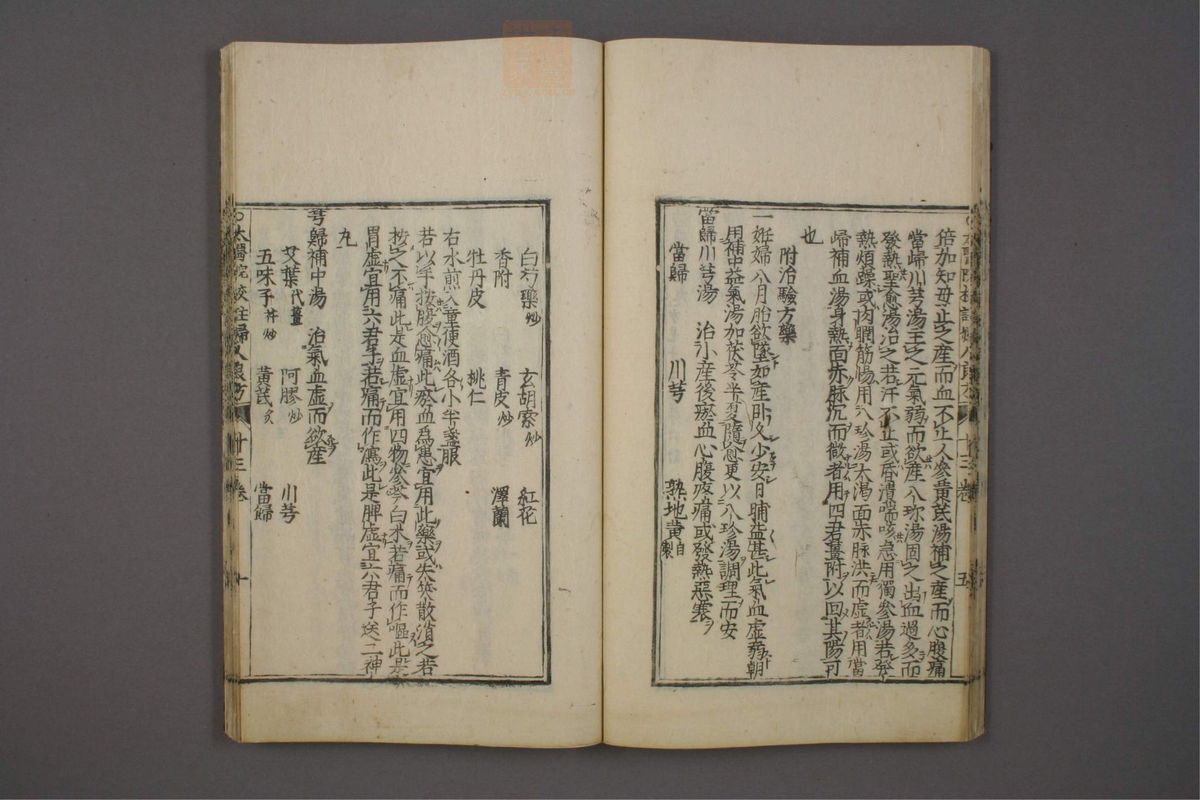 倍加知母止之産而血不止人參黄芪湯補之産而心腹痛
當歸川芎湯主之元氣弱而欲産八珍湯固之出血過多而
發熱聖愈湯治之若汗不止或昏潰喘咳急用獨參湯若發
熱煩躁或肉瞤筋惕用八珍湯大渇面赤脉洪而虚者用當
歸補血湯身熱面赤脉沉而微者用四君薑附以回其陽可
也
附治驗方藥
一妊婦八月胎欲墮如産卧久少安日晡益甚此氣血虚弱朝
用補中益氣湯加茯苓半夏隨愈更以八珍湯調理而安
當歸川芎湯 治小産後瘀血心腹疼痛或發熱惡寒
當歸 川芎 熟地黄自製
白芍藥炒 玄胡索炒 紅花
香附 青皮炒 澤蘭
牡丹皮 桃仁
右水煎入童便酒各小半盞服
若以手按腹愈痛此瘀血爲患宜用此藥或失笑散消之若
按之不痛此是血虚宜用四物參苓白朮若痛而作嘔此是
胃虚宜用六君子若痛而作瀉此是脾虚宜六君子送二神
丸
芎歸補中湯 治氣血虚而欲産
艾葉代薑 阿膠炒 川芎
五味子杵炒 黄芪炙 當歸
太醫院校註婦人良方 十三卷 十